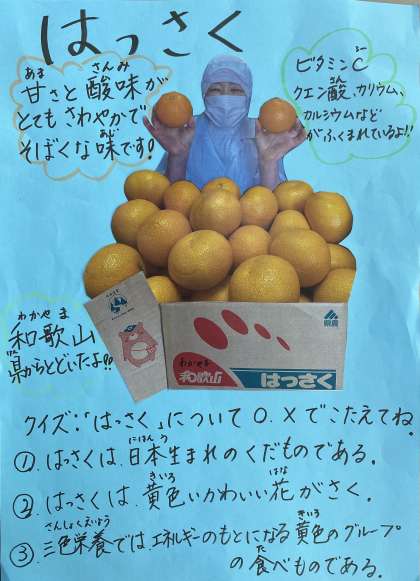 はっさく
甘さと酸味が
あま
さんみ
とてもさわやかで
そぼくな味です!
あじ
ビタミンC
シー
クエン酸、カリウム、
さん
カルシウムなど
がふくまれているよ!!
わかやま
和歌山
県からとどいたよ!!
けん
わかやま
和歌山
はっさく
県農
クイズ:「はっさく」について○.×でこたえてね
①.はっさくは、日本生まれのくだものである。
にほんう
②.はっさくは、黄色いかわいい花がさく。
きいろ
はな
③.三色栄養では、エネルギーのもとになる黄色のグループ
さんしょくえいよう
きいろ
の食べものである。
た